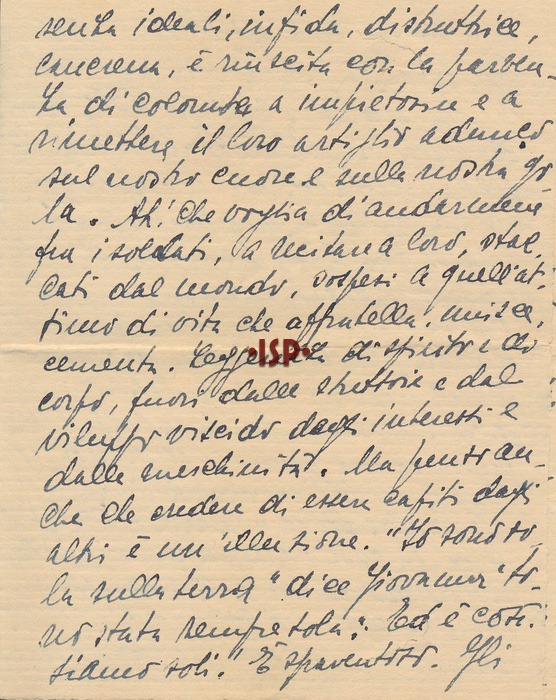 senza ideali, infida, distruttrice,
cancrena, è riuscita con la parven-
za di colomba a impietosire e a
rimettere il loro artiglio adunco
sul nostro cuore e sulla nostra go
la. Ah! che voglia di andarmene
fra i soldati, a vicino a loro, stac
cati dal mondo, sospesi a quell'at-
timo di vita che affratella, unisce,
cementa. Leggerezza di spirito e di
·ISP·
corpo, fuori dalle strettoie e dal
viluppo viscido degli interessi e
dalle meschinità. Ma penso an-
che che credere di essere capiti dagli
altri è un'illusione. "Io sono so-
la sulla terra" dice Giovanna "so-
no stata sempre sola". Ed è così:
siamo soli." È spaventoso. Gli